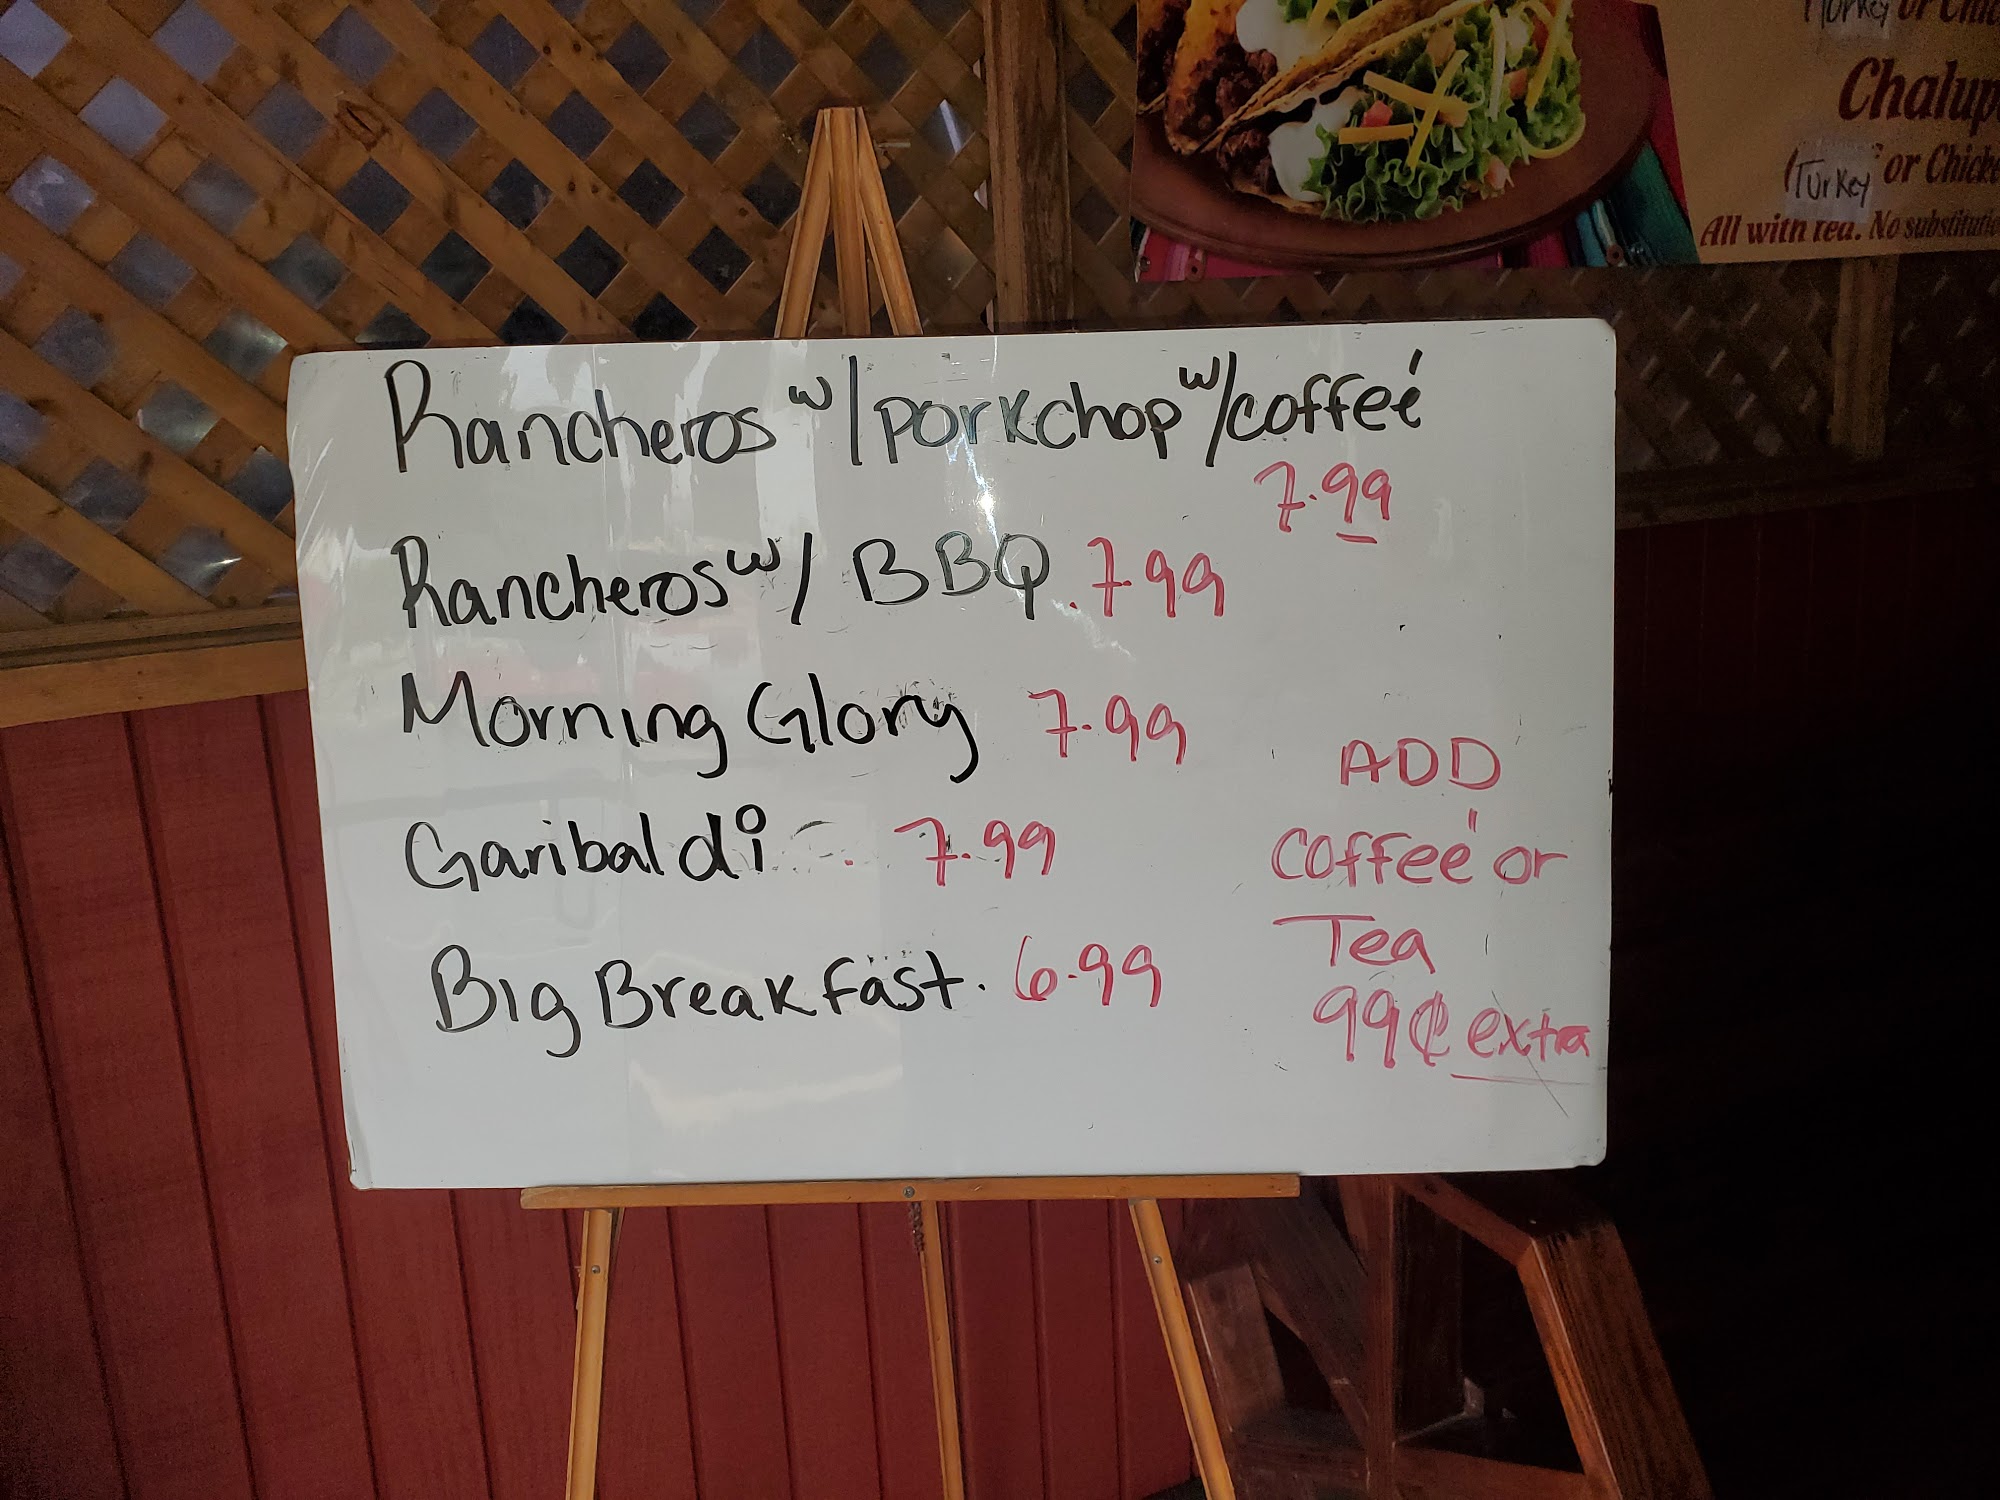 Turkey or Chic
Chalup
Turkey or Chicke
All with tea. No substitutio
Rancheros w/porkchop w/coffeé
7.99
Rancheros w/ BBQ. 7.99
Morning Glory 7.99
Garibaldi . 7.99
Big Breakfast. 6.99
ADD
coffeé or
Tea
99¢ extra